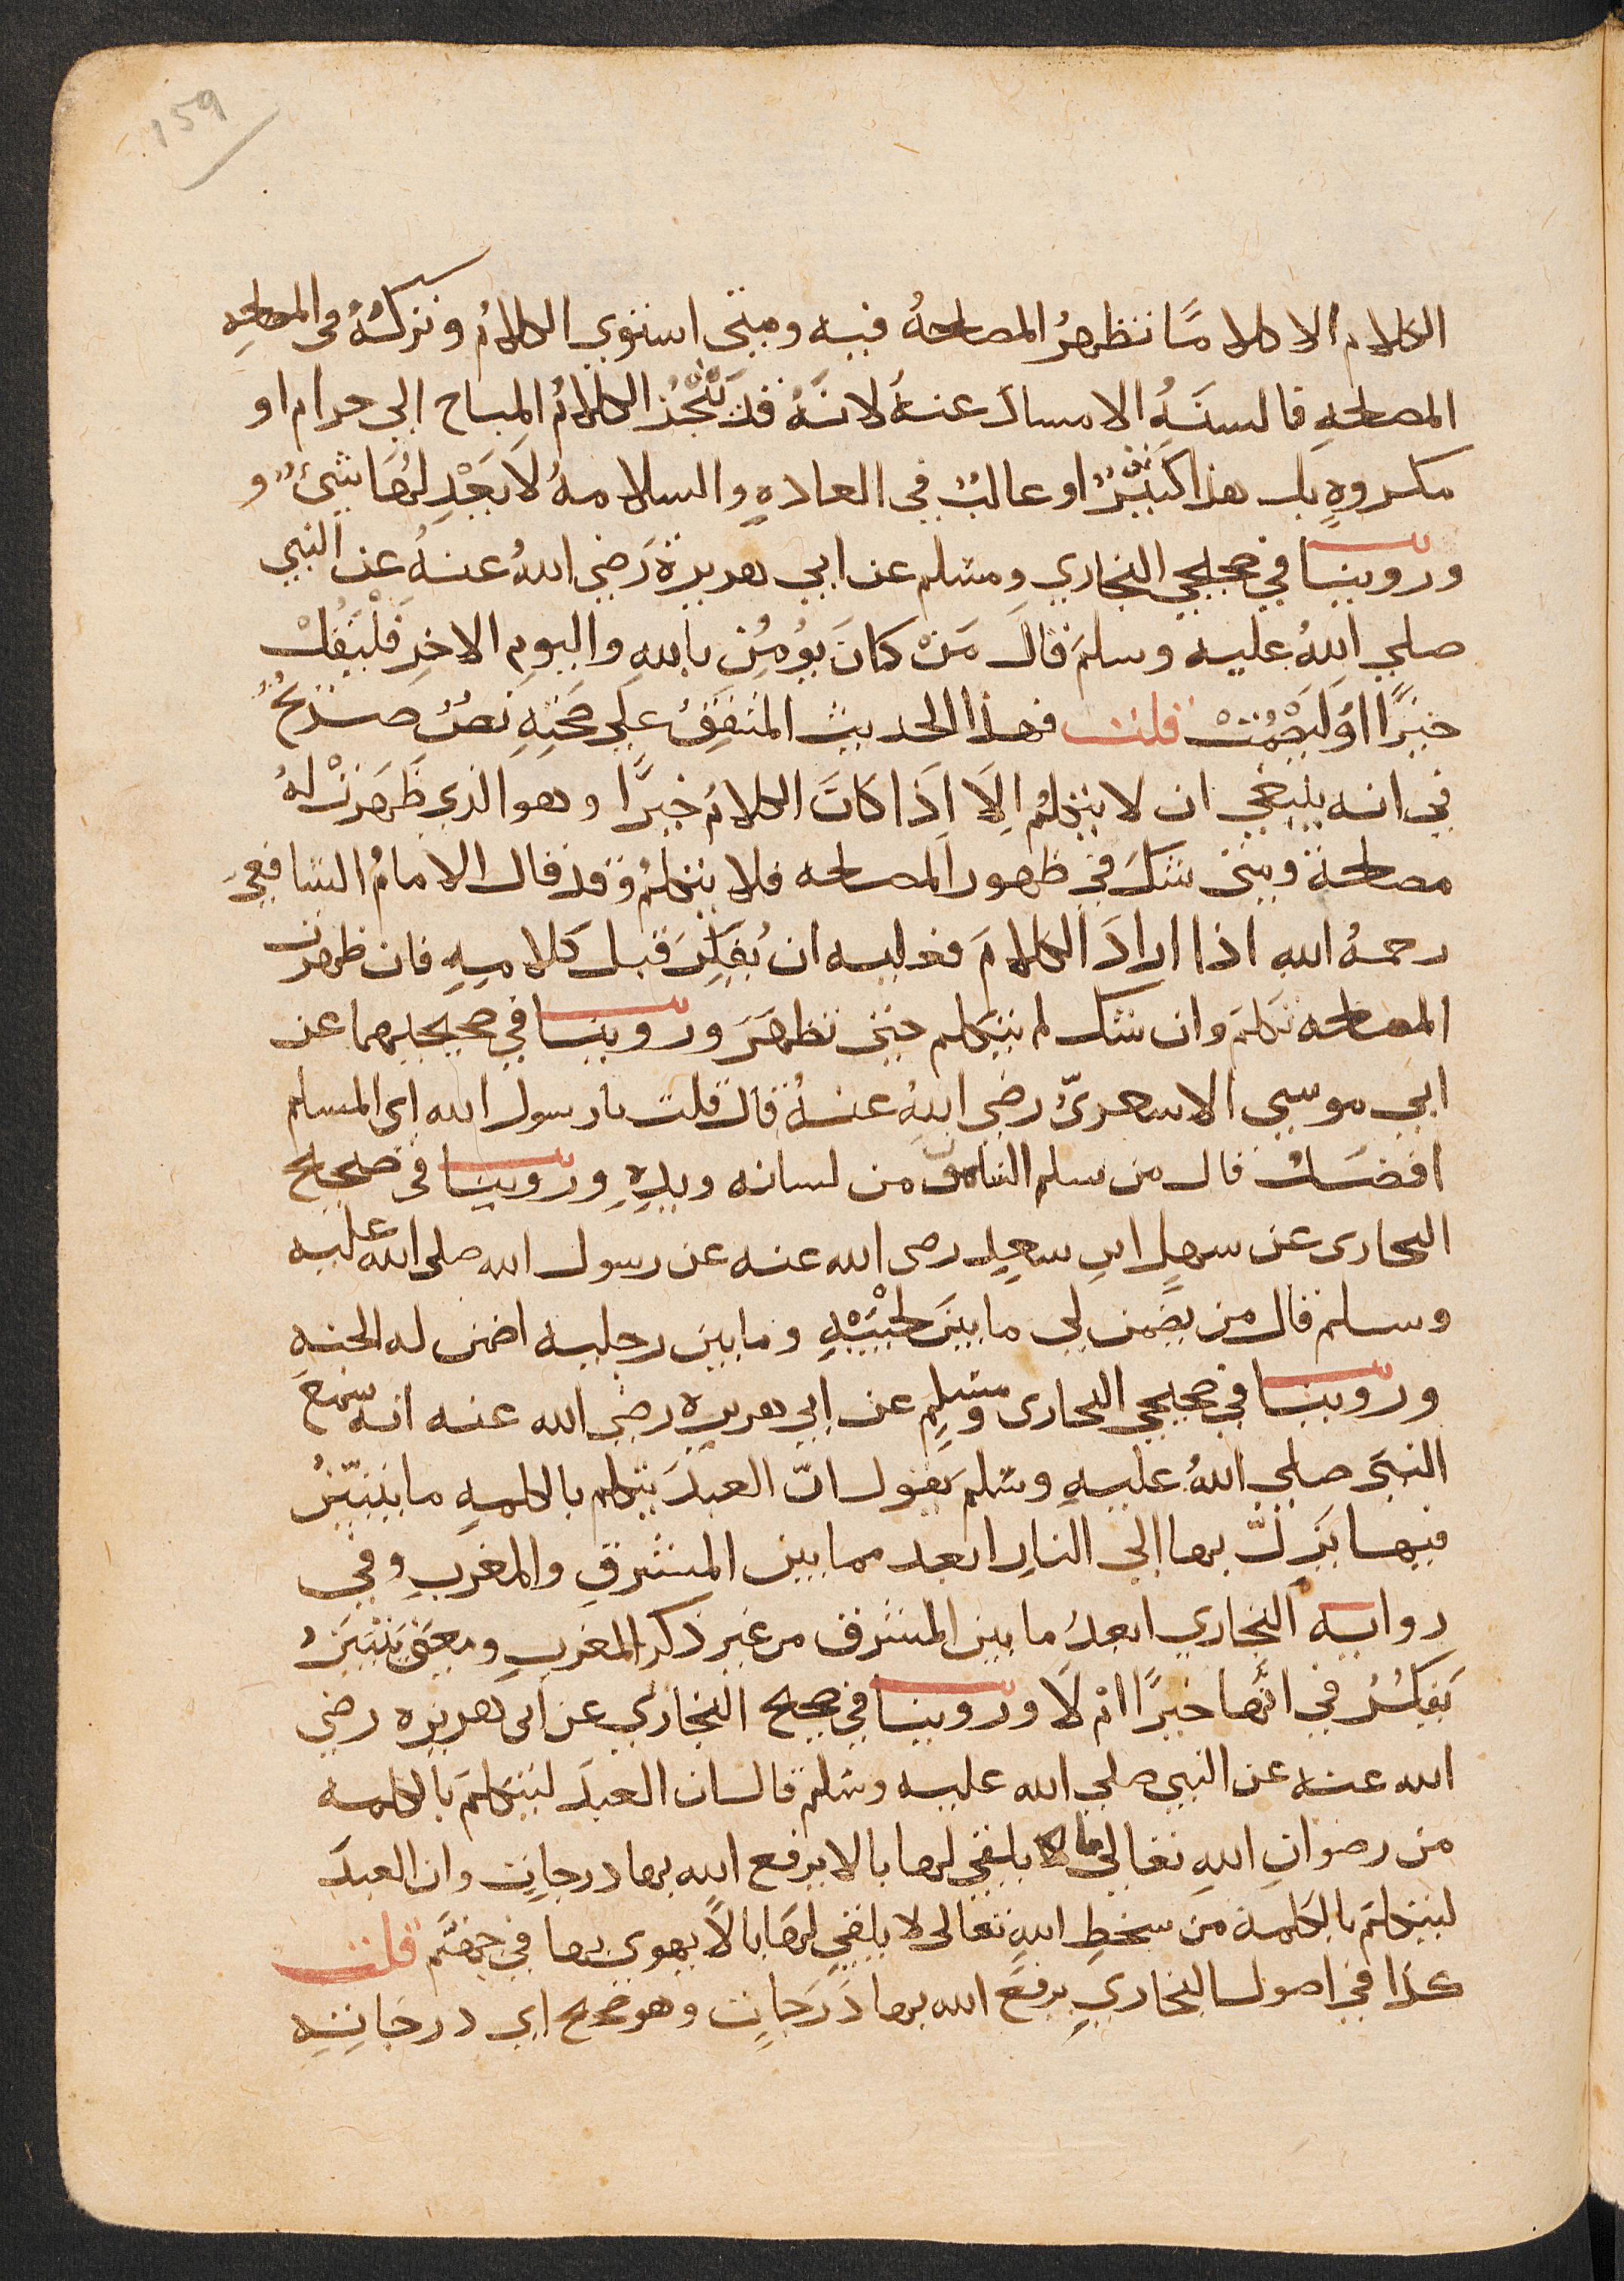 159
الكلام الا كلاما تظهرُ المصلحةُ فيه ومتى استوي الكلامُ وتركُهُ في المصلحهِ
المصلحهِ فالسنَهُ الامساك عنهُ لانَهُ قد يَنْجُذُ الكلامُ المباح الي حرام او
مكروهٍ بل هذا كثيرٌ او غالبٌ في العادهِ والسلامهُ لا يَعْدِلُهَا شيءٌ و
وروينا في صحيحي البخاري ومسلم عن ابي هريرة رَضي اللهُ عنهُ عن النبي
صلي اللهُ عليه وسلم قال مَنْ كانَ يُومُن باللهِ واليومِ الاخرِ فَلْيَقُلْ
خيرًا اوْ ليَصْمُتْ قلت فهذا الحديث المتفقُ علي صحتِهِ نصٌ صريحٌ
في انه ينبغي ان لا يتكلم الَا اذَا كانَ الكلامُ خيرًا وهو الذي ظَهَرَتْ لهُ
مصلحة ومتى شكَ في ظهور المصلحه فلا يتكلمُ وقد قال الامامُ الشافعيَ
رحمهُ اللهِ اذا ارادَ الكلامَ فعليه ان يُفكِرَ قبل كلامِهِ فان ظهرت
المصلحه تكلمَ وان شك لم يتكلم حتى تظهَرَ وروينا في صحيحيهما عن
ابي موسي الاسعريّ رضي اللهُ عنهُ قال قلت يا رسول الله اي المسلم
افضَلُ قال من سلم الناس من لسانه ويدِهِ وروينا في صحيح
البحارى عن سهلِ ابنِ سعيدٍ رصى الله عنه عن رسول الله صلى الله عليه
وسلم قال من يضمن لي ما بينَ لحْيَيْهِ وما بين رجليه اضمن له الجنه
وروينا في صحيحي البحارى ومسلمٍ عن ابي هريره رضي الله عنه انه سمعَ
النبيَ صلي اللهُ عليهِ وسلم يَقول انّ العبدَ يتكلم بالكلمهِ ما يتبيّنُ
فيها يَزِلّ بها الي النارِ ابعد مما بين المشرقِ والمغربِ وفي
روايه البخاري ابعدُ ما بين المشرق من غير ذكر المغربِ ومعنى يَتَبيَنُ
يَفكرُ في انَّها خيرًا ام لَا وروينا في صحيح البخاري عن ابى هريره رضي
الله عنه عن النبي صلي الله عليه وسلم قال ان العبدَ ليتكلمَ بالكلمه
من رضوانِ اللهِ تعالي ما يلقي لها بالا يرفع الله بها درجاتٍ وان العبدَ
ليتكلمَ بالكلمة من سخطِ اللهِ تعالى لا يلقي لهَا بالاً يهوي بها في جهنَّم قلت
كذا في اصول البخاريِ يرفعَ الله بها دَرَجاتٍ وهو صحيح اي درجَاتِهِ